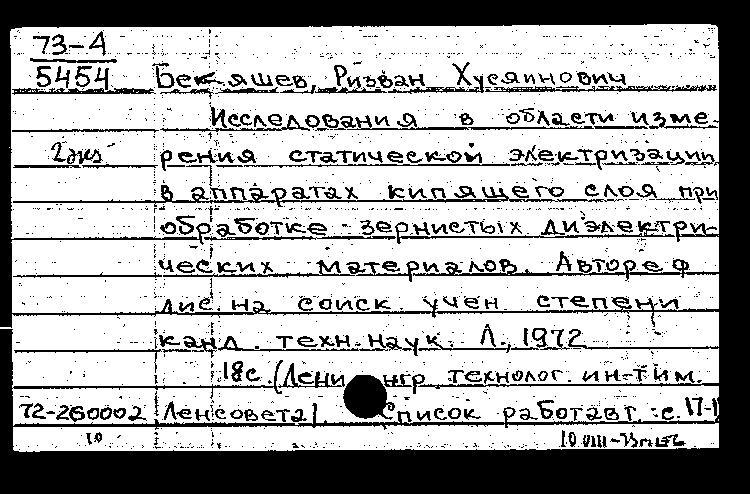 73-А
5454 Бекяшев, Ризван Хусяинович
Исследования в области изме-
2 экз рения статической электризации
в аппаратах кипящего слоя при
обработке зернистых диэлектри-
ческих материалов. Автореф
дис. на соиск. учен степени
канд. техн. наук. Л., 1972
18с. (Лени нгр технолог. ин-т им.
72-260002 Ленсовета). Список работ авт.: с. 17-1
10